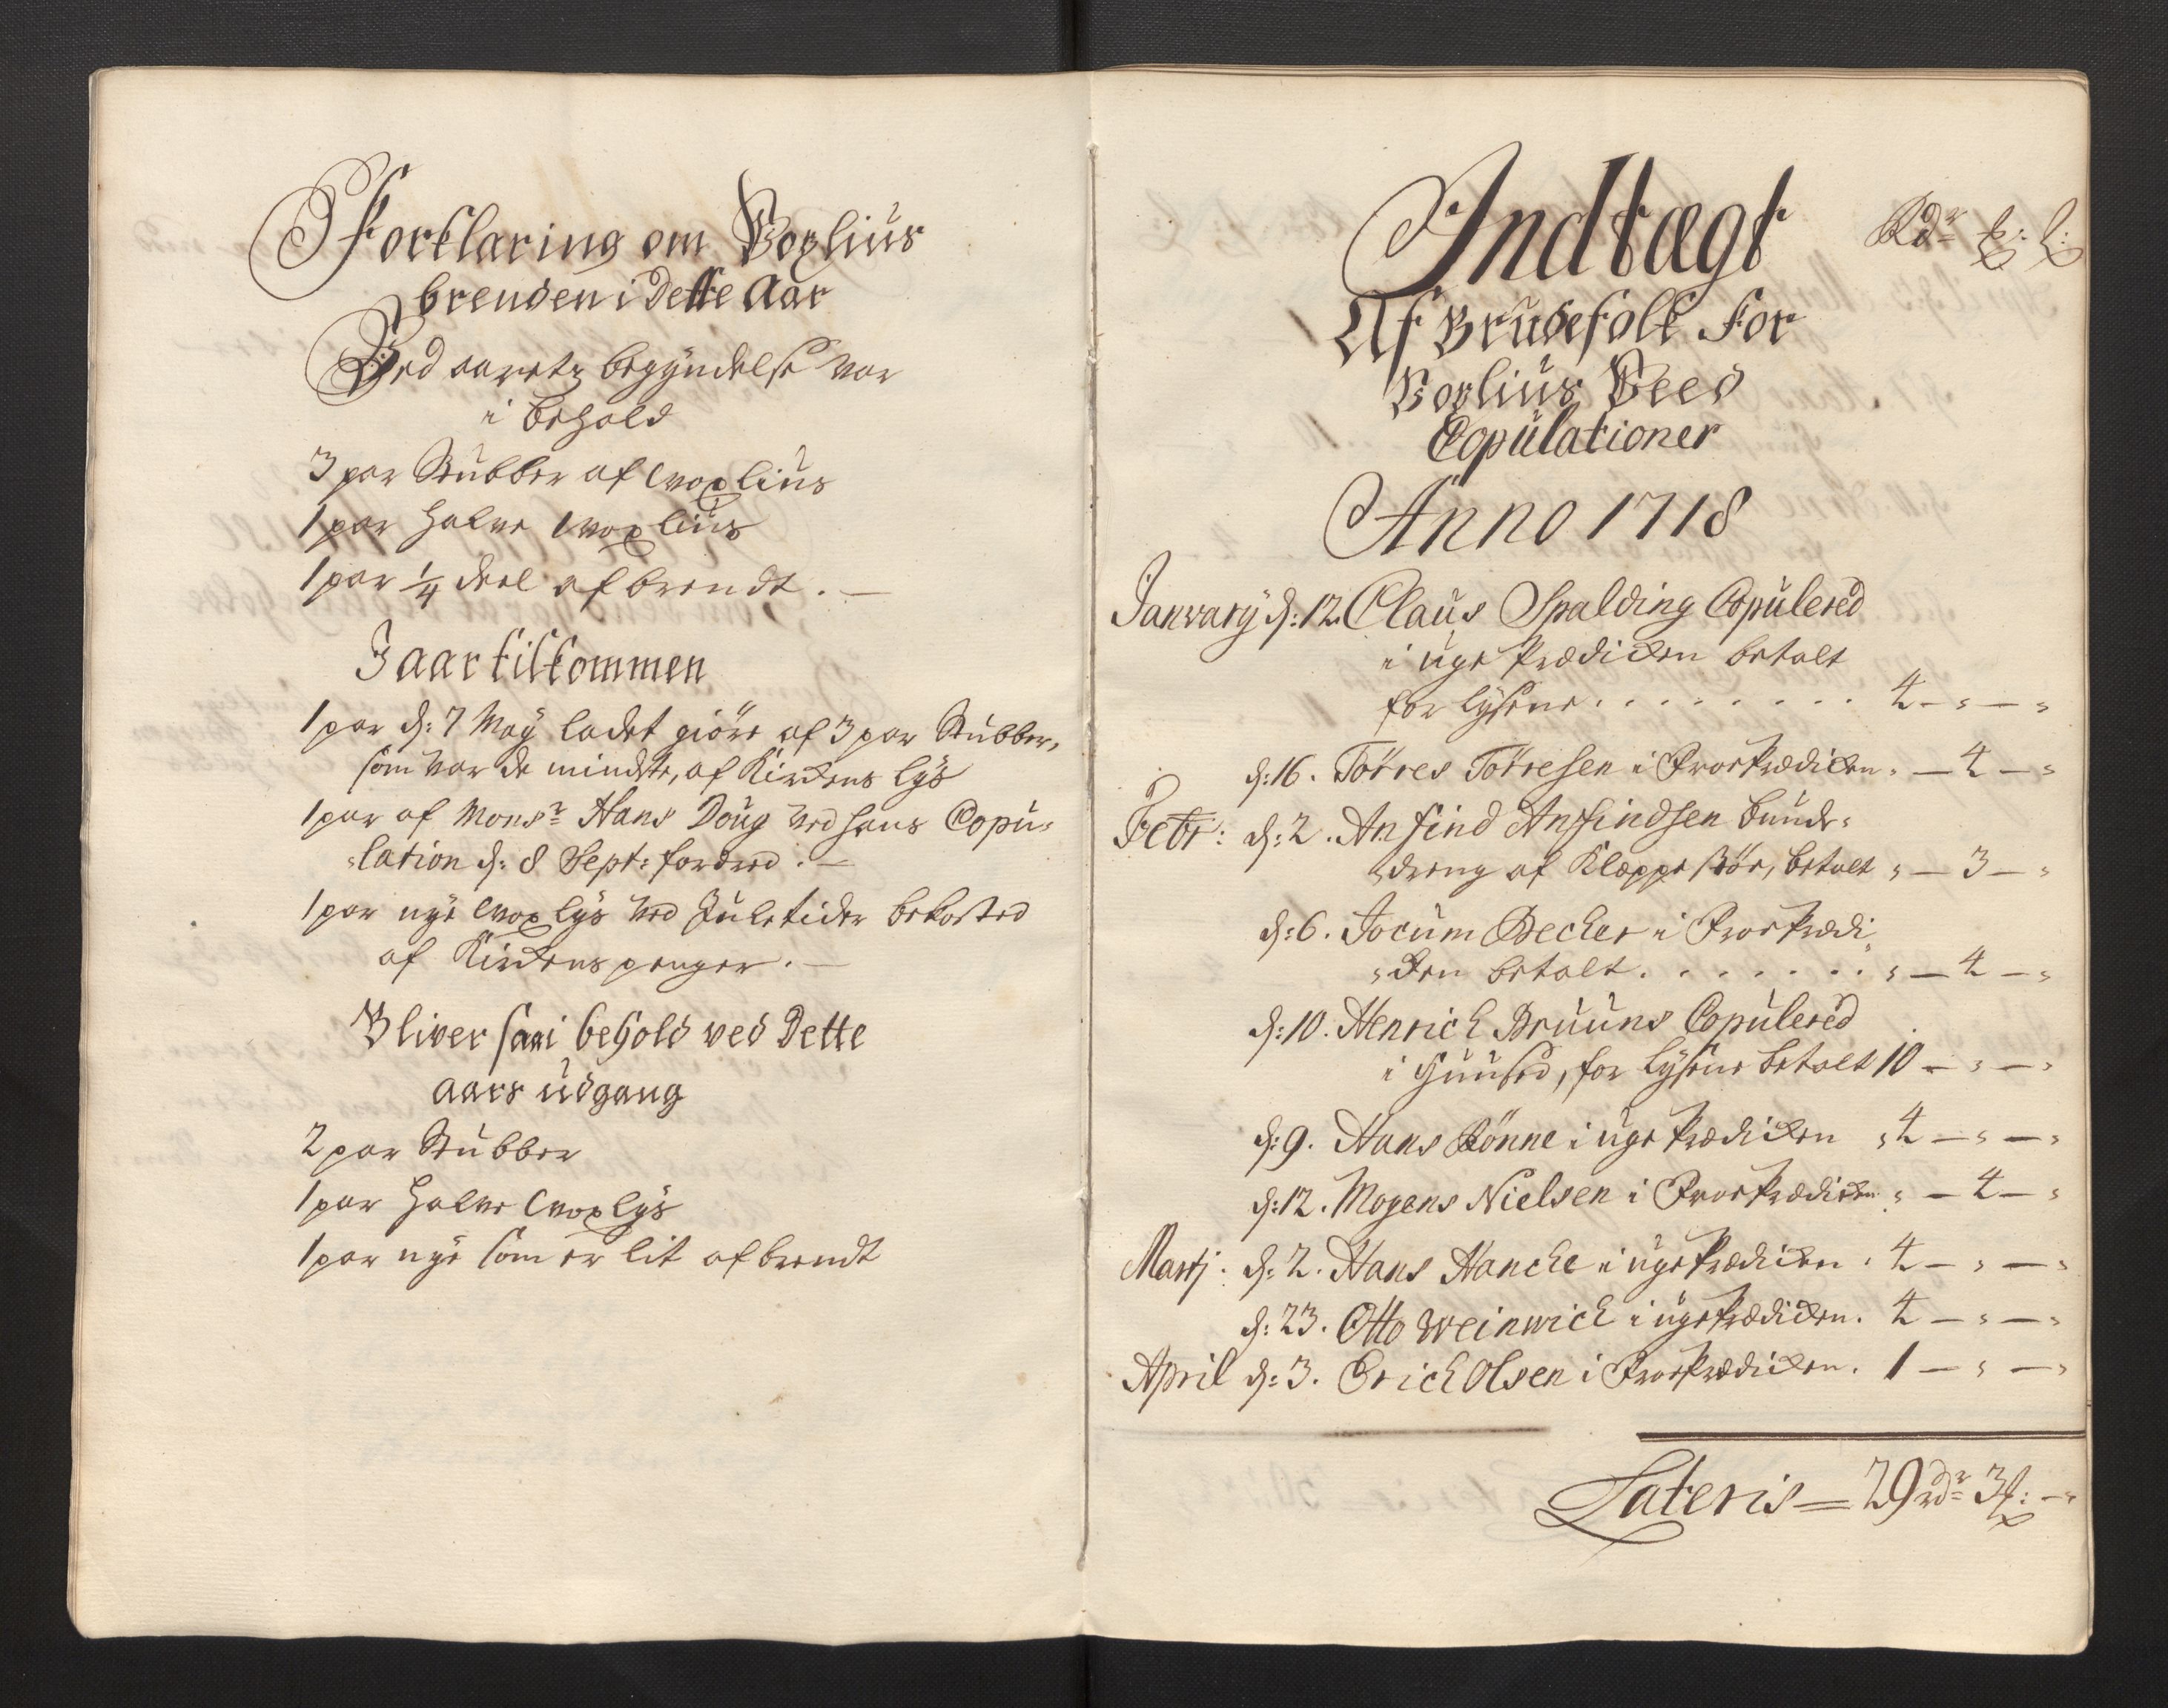 Forklaring om Voxlius
brenden i Dette Aar
Ved aaretz begÿndelse var
i behold
3 par Stubber af Woxlius
1 par halve Woxlius
1 par 1/4 deel afbrendt. —
I aar tilkommen
1 par d: 7 Maÿ ladet giöre af 3 par Stubber,
som var de mindste, af Kirckens lÿs
1 par af Monsr Hans Doug ved hans Copu-
-lation d: 8 Sept: foræred. —
1 par nÿe Woxlÿs ved Juletider bekosted
af Kirckens penger. —
Bliver saa i behold ved Dette
aars udgang
2 par Stubber
1 par halve Woxlÿs
1 par nÿe som er lit afbrendt
Indtægt
Af Brudefolk For
Voxlius Veed
Copulationer
Rdr ꝟ: ß:
Anno 1718
Janvarÿ d: 12. Claus Spalding Copulered
i uge Prædicken betalt
for lÿsene. . . . . . . . . 4 — " — "
d: 16. Törres Törresen i Froeprædicken " — 4 — "
Febr: d: 2. Anfind Anffindsen bunde-
"dreng af Klæppe söe, betalt " — 3 — "
d: 6. Jocum Becker i Froeprædi
"cken betalt. . . . . . . . " — 4 — "
d: 10. Henrich Bruuns Copulered
i Huused, for lÿsene betalt 10 — " — "
d: 9. Hans Rönne i uge Prædicken " 4 — " — "
d: 12. Mogens Nielsen i Froeprædicken " — 4 — "
Martj: d: 2. Hans Hancke i ugeprædicken. 4 — " — "
d: 23. Otto Weinwich i ugeprædicken. 4 — " — "
April d: 3. Erich Olsen i Froeprædicken. 1 — " — "
Lateris — 29 rdr 3 ꝟ: — "